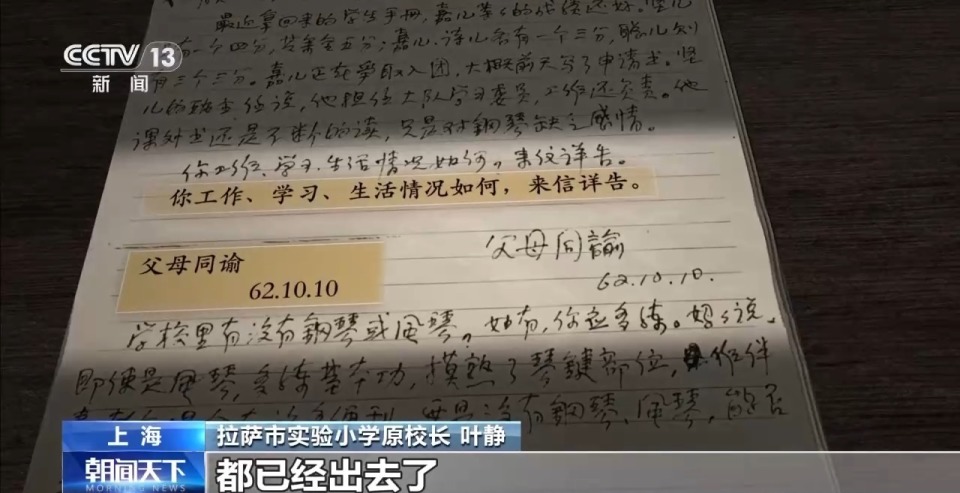 CCTV 13
新闻
最近拿回来的学生手册,嘉儿等的成绩还好。坚儿
有一个四分,其余全五分;嘉儿、诗儿各有一个三分,聪儿则
有三个三分。嘉儿正在争取入团,大概前天写了申请书。坚
儿他担任大队学习委员,工作还负责。他
课外书还是不断的读,只是对鋼琴缺乏感情。
你工作、学习、生活情况如何,来信详告。
你工作、学习、生活情况如何,来信详告。
父母同諭
62.10.10.
父母同谕
62.10.10
学校里有没有鋼琴或风琴。如有,你应多练。妈妈说,
即使是风琴,多练基本功,摸熟了琴键部位,作伴
要是没有鋼琴、风琴,能否
上海 拉萨市实验小学原校长 叶静
朝闻天下
MORNING NEWS
都已经出去了